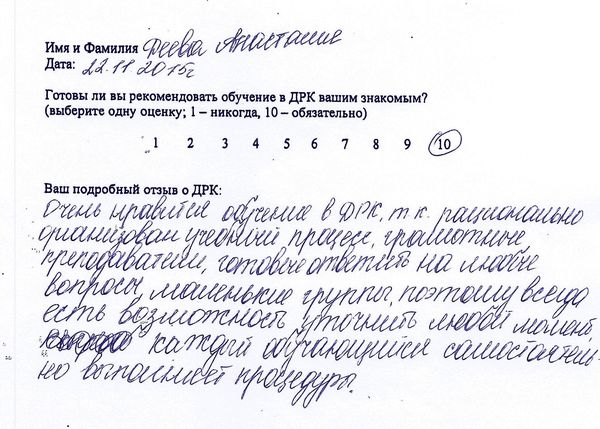 Имя и Фамилия Деева Анастасия
Дата: 22.11 2015г
Готовы ли вы рекомендовать обучение в ДРК вашим знакомым?
(выберите одну оценку; 1 – никогда, 10 – обязательно)
1 2 3 4 5 6 7 8 9 10
Ваш подробный отзыв о ДРК:
Очень нравится обучение в ДРК, т.к. рационально
организован учебный процесс, грамотные
преподаватели, готовые ответить на любые
вопросы, маленькие группы, поэтому всегда
есть возможность уточнить любой момент
каждый обучающийся самостоятель-
но выполняет процедуры.